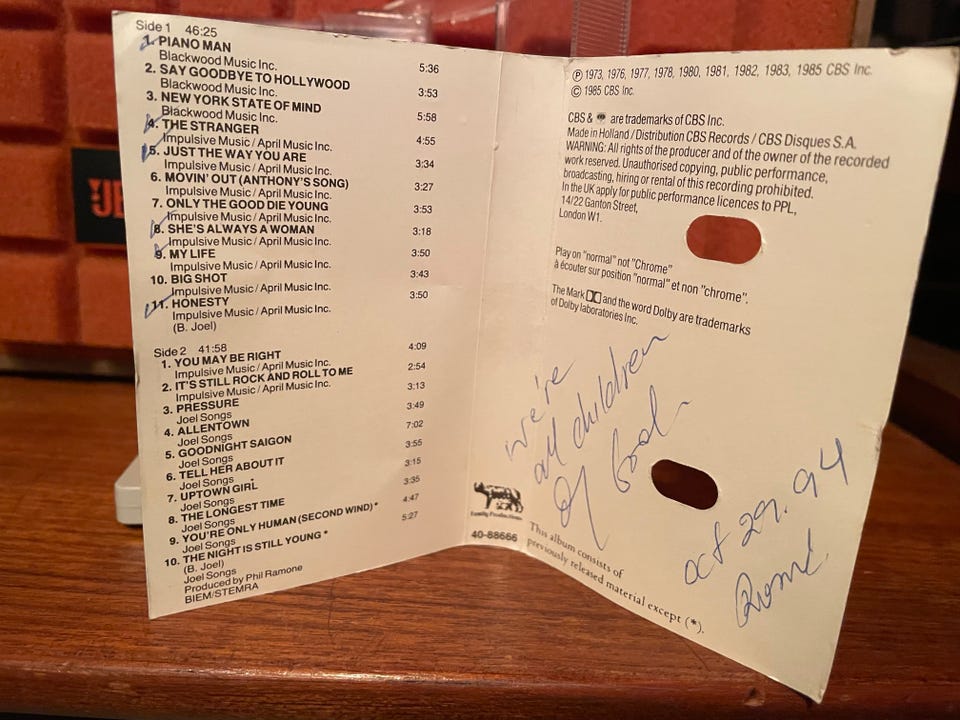 Side 1 46:25
1. PIANO MAN
Blackwood Music Inc. 5:36
2. SAY GOODBYE TO HOLLYWOOD
Blackwood Music Inc. 3:53
3. NEW YORK STATE OF MIND
Blackwood Music Inc. 5:58
4. THE STRANGER
Impulsive Music / April Music Inc. 4:55
5. JUST THE WAY YOU ARE
Impulsive Music / April Music Inc. 3:34
6. MOVIN' OUT (ANTHONY'S SONG)
Impulsive Music / April Music Inc. 3:27
7. ONLY THE GOOD DIE YOUNG
Impulsive Music / April Music Inc. 3:53
8. SHE'S ALWAYS A WOMAN
Impulsive Music / April Music Inc. 3:18
9. MY LIFE
Impulsive Music / April Music Inc. 3:50
10. BIG SHOT
Impulsive Music / April Music Inc. 3:43
11. HONESTY
Impulsive Music / April Music Inc. 3:50
(B. Joel)
Side 2 41:58
1. YOU MAY BE RIGHT 4:09
Impulsive Music / April Music Inc.
2. IT'S STILL ROCK AND ROLL TO ME 2:54
Impulsive Music / April Music Inc.
3. PRESSURE 3:13
Joel Songs
4. ALLENTOWN 3:49
Joel Songs
5. GOODNIGHT SAIGON 7:02
Joel Songs
6. TELL HER ABOUT IT 3:55
Joel Songs
7. UPTOWN GIRL 3:15
Joel Songs
8. THE LONGEST TIME 3:35
Joel Songs
9. YOU'RE ONLY HUMAN (SECOND WIND) * 4:47
Joel Songs
10. THE NIGHT IS STILL YOUNG * 5:27
(B. Joel)
Joel Songs
Produced by Phil Ramone
BIEM/STEMRA
Family Productions
40-88666
℗ 1973, 1976, 1977, 1978, 1980, 1981, 1982, 1983, 1985 CBS Inc.
© 1985 CBS Inc.
CBS & are trademarks of CBS Inc.
Made in Holland / Distribution CBS Records / CBS Disques S.A.
WARNING: All rights of the producer and of the owner of the recorded
work reserved. Unauthorised copying, public performance,
broadcasting, hiring or rental of this recording prohibited.
In the UK apply for public performance licences to PPL,
14/22 Ganton Street,
London W1.
Play on "normal" not "Chrome"
à écouter sur position "normal" et non "chrome".
The Mark and the word Dolby are trademarks
of Dolby laboratories Inc.
we're
all children
of God
oct 29. 94
Rome
This album consists of
previously released material except (*).